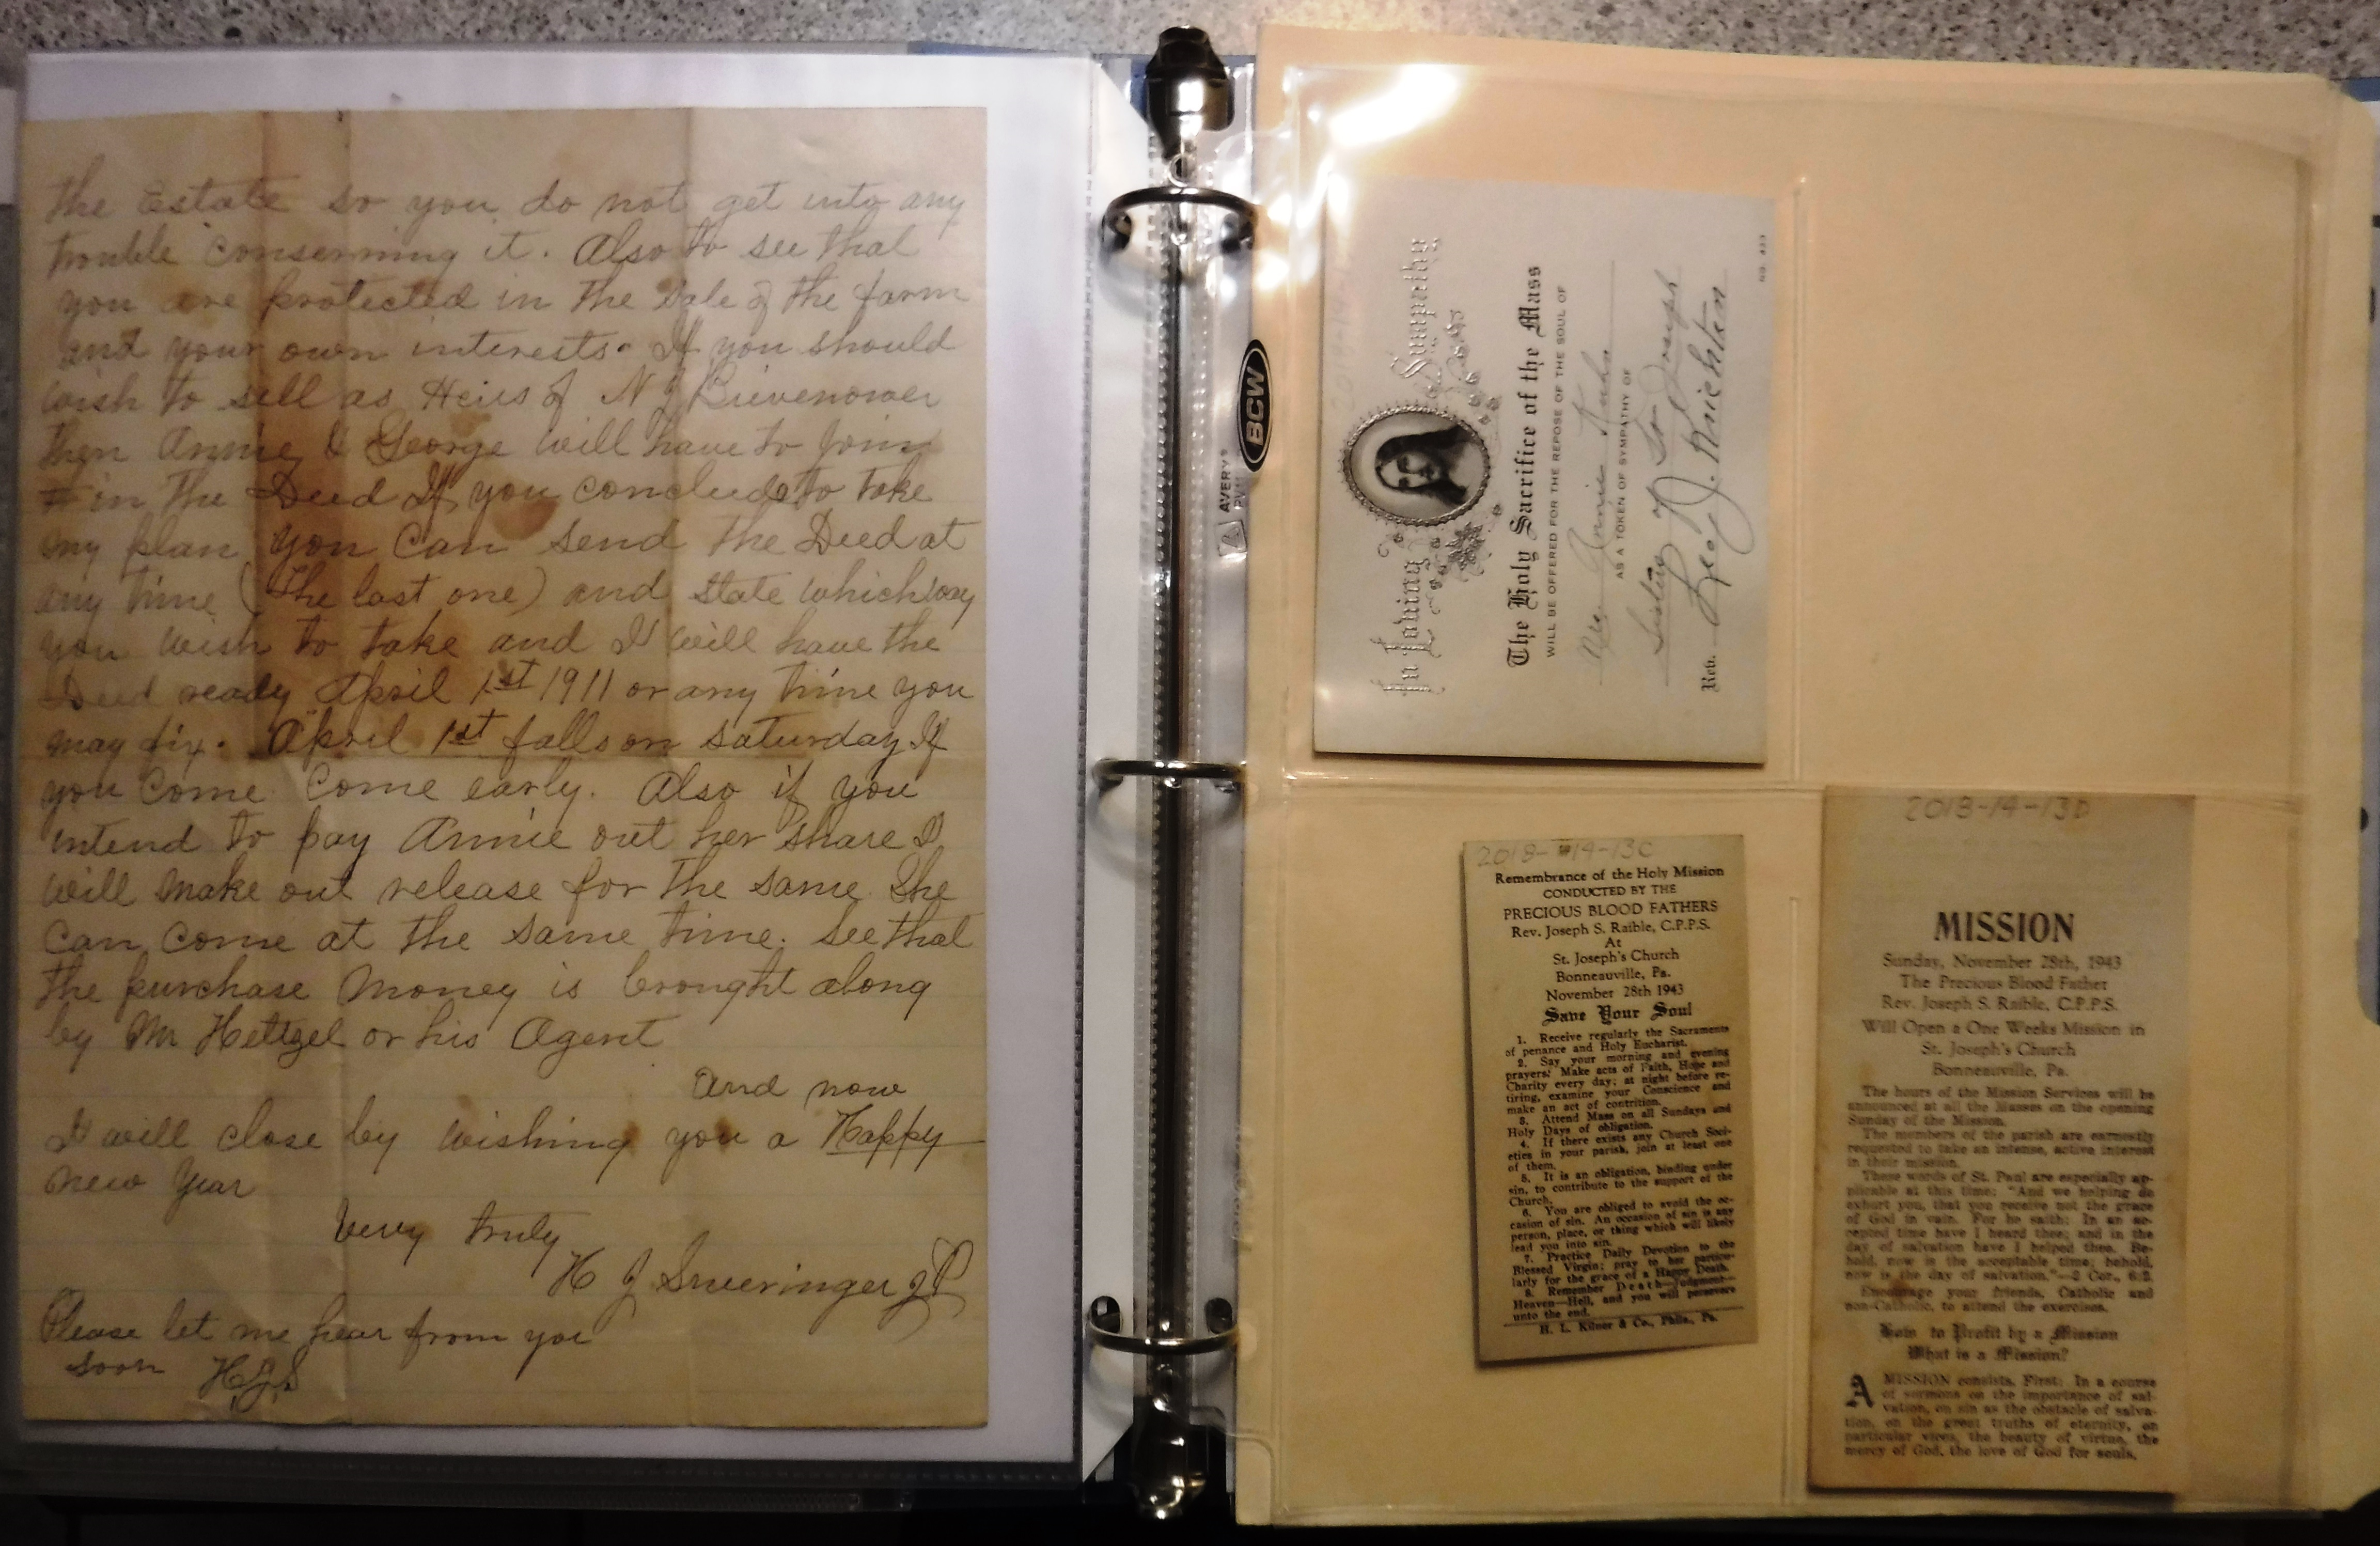 the Estate so you do not get into any
trouble conserning it. Also to see that
you are protected in the sale of the farm
and your own interests. If you should
wish to sell as Heirs of N J
then Annie & George will have to join
in the Deed If you conclude to take
my plan you can send the Deed at
any time (the last one) and state which way
you wish to take and I will have the
Deed ready April 1st 1911 or any time you
may fix. April 1st falls on Saturday If
you come come early. Also if you
intend to pay Annie out her share I
will make out release for the same. She
can come at the same time. See that
the purchase money is brought along
by Mr Hettgel or his Agent
And now
I will close by wishing you a Happy
New Year
Very truly
H J Sneeringer JP
Please let me hear from you
soon HJS
BCW
AVERY
In Loving Sympathy
The Holy Sacrifice of the Mass
WILL BE OFFERED FOR THE REPOSE OF THE SOUL OF
Annie
AS A TOKEN OF SYMPATHY OF
Sisters of St Joseph
Rev. Leo J. Krichten
NO. 423
2018-14-13C
Remembrance of the Holy Mission
CONDUCTED BY THE
PRECIOUS BLOOD FATHERS
Rev. Joseph S. Raible, C.PP.S.
At
St. Joseph's Church
Bonneauville, Pa.
November 28th 1943
Save Your Soul
1. Receive regularly the Sacraments
of penance and Holy Eucharist.
2. Say your morning and evening
prayers! Make acts of Faith, Hope and
Charity every day; at night before re-
tiring, examine your Conscience and
make an act of contrition.
3. Attend Mass on all Sundays and
Holy Days of obligation.
4. If there exists any Church Soci-
eties in your parish, join at least one
of them.
5. It is an obligation, binding under
sin, to contribute to the support of the
Church.
6. You are obliged to avoid the oc-
casion of sin. An occasion of sin is any
person, place, or thing which will likely
lead you into sin.
7. Practice Daily Devotion to the
Blessed Virgin; pray to her particu-
larly for the grace of a Happy Death.
8. Remember Death—Judgment—
Heaven—Hell, and you will persevere
unto the end.
H. L. Kilner & Co., Phila., Pa.
2018-14-13D
MISSION
Sunday, November 28th, 1943
The Precious Blood Father
Rev. Joseph S. Raible, C.PP.S.
Will Open a One Weeks Mission in
St. Joseph's Church
Bonneauville, Pa.
The hours of the Mission Services will be
announced at all the Masses on the opening
Sunday of the Mission.
The members of the parish are earnestly
requested to take an intense, active interest
in their mission.
These words of St. Paul are especially ap-
plicable at this time: "And we helping do
exhort you, that you receive not the grace
of God in vain. For he saith: In an ac-
cepted time have I heard thee; and in the
day of salvation have I helped thee. Be-
hold, now is the acceptable time; behold,
now is the day of salvation."—2 Cor., 6:2.
Encourage your friends, Catholic and
non-Catholic, to attend the exercises.
How to Profit by a Mission
What is a Mission?
A MISSION consists, First: In a course
of sermons on the importance of sal-
vation, on sin as the obstacle of salva-
tion, on the great truths of eternity, on
particular vices, the beauty of virtue, the
mercy of God, the love of God for souls,